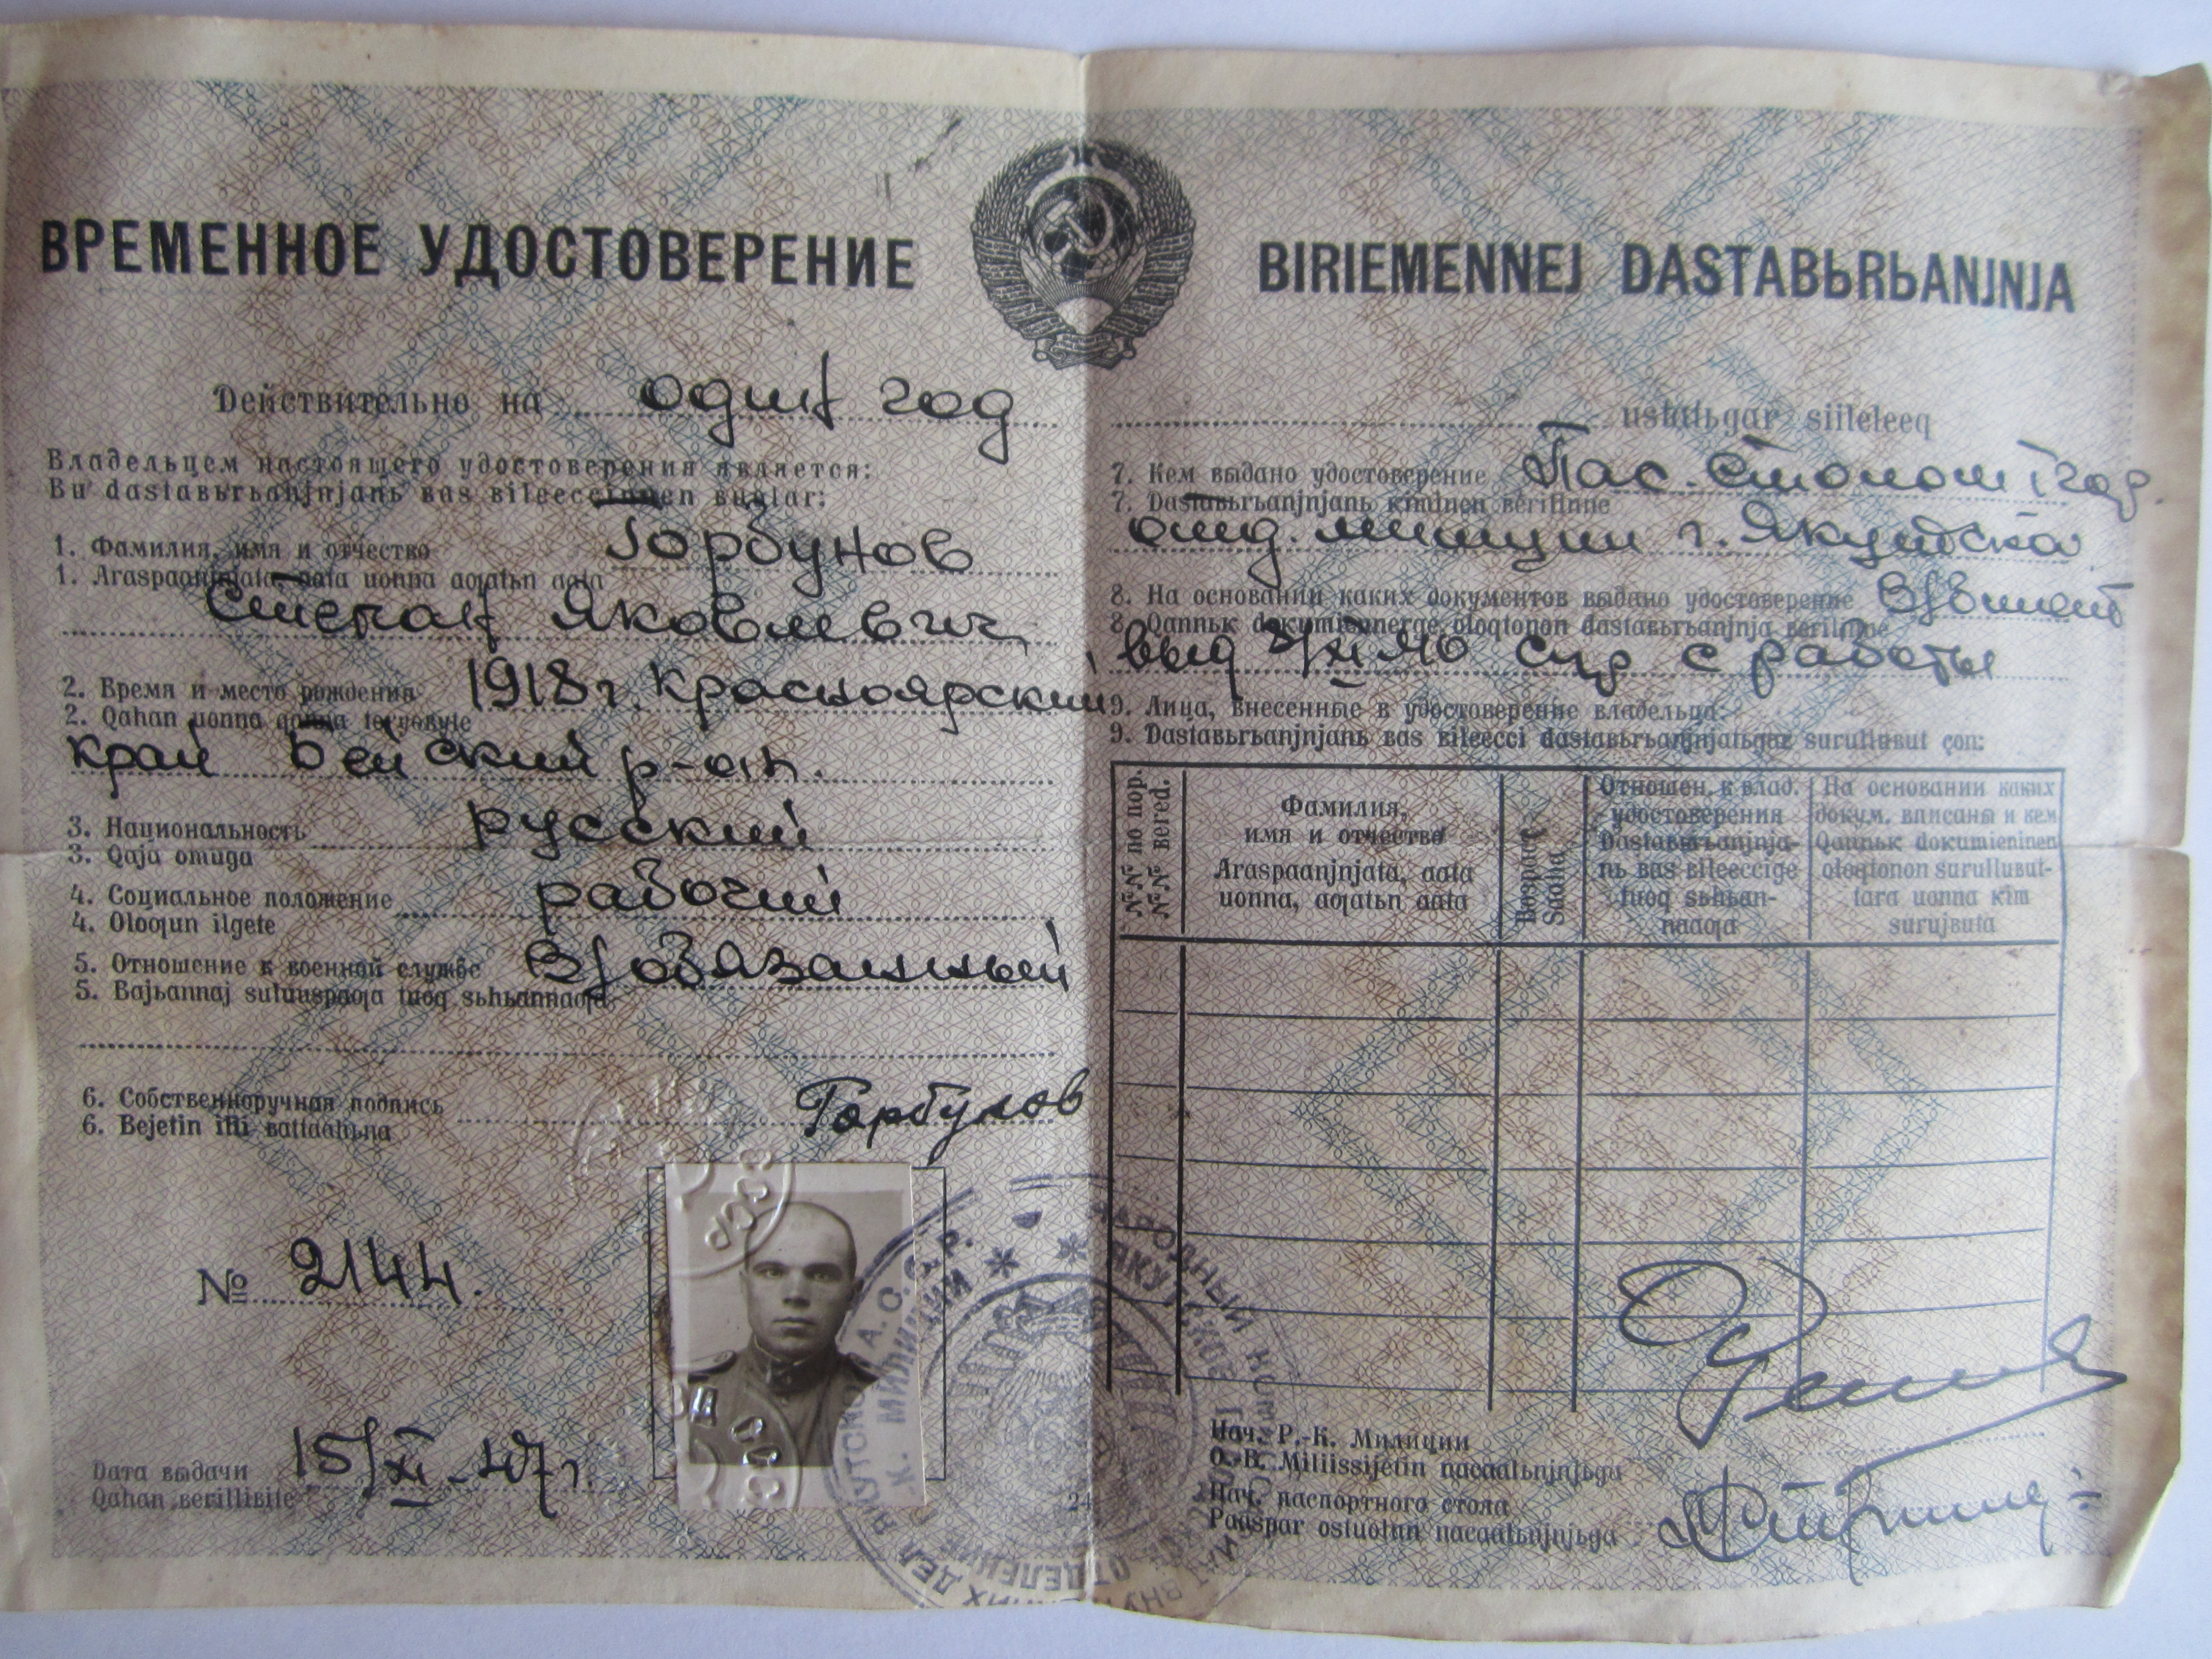 ВРЕМЕННОЕ УДОСТОВЕРЕНИЕ
Действительно на один год
Владельцем настоящего удостоверения является:
Bu dastabьrьanjnjanь bas bileeccinen buolar:
1. Фамилия, имя и отчество Горбунов
1. Araspaanjnjata, aata uonna aƣatьn aata
Степан Яковлевич
2. Время и место рождения 1918 г. Красноярский
2. Qahan uonna qanna tөryөbyte
край Бейский р-он.
3. Национальность русский
3. Qaja omuga
4. Социальное положение рабочий
4. Oloƣun ilgete
5. Отношение к военной службе В/обязанный
5. Bajьannaj suluuspaƣa tuoq sьhьannaaƣa
6. Собственноручная подпись Горбунов
6. Bejetin ilii battaahьna
№ 2144.
Дата выдачи 15/XI-47 г.
Qahan berillibite
BIRIEMENNEJ DASTABЬRЬANJNJA
ustatьgar siileleeq
7. Кем выдано удостоверение Пас. столом 1 гор.
7. Dastabьrьanjnjanь kiminen berilinne
отд. милиции г. Якутска
8. На основании каких документов выдано удостоверение В/билет
8. Qannьk dokumiennerge oloqtonon dastabьrьanjnja berilinne
выд. XI 46 с работы
9. Лица, внесенные в удостоверение владельца:
9. Dastabьrьanjnjanь bas bileecci dastabьrьanjnjatьgar surullubut çon:
№№ по пор.
№№ bered.
Фамилия,
имя и отчество
Araspaanjnjata, aata
uonna, aƣatьn aata
Возраст
Saaha
Отношен. к влад.
удостоверения
Dastabьrьanjnja-
nь bas bileeccige
tuoq sьhьan-
naaƣa
На основании каких
докум. вписаны и кем
Qannьk dokumieninen
oloqtonon surullubut-
tara uonna kim
surujbuta
Нач. Р.-К. Милиции
O.-B. Miliissijetin nacaalьnjnjьga
Нач. паспортного стола
Paaspar ostuolun nacaalьnjnjьga